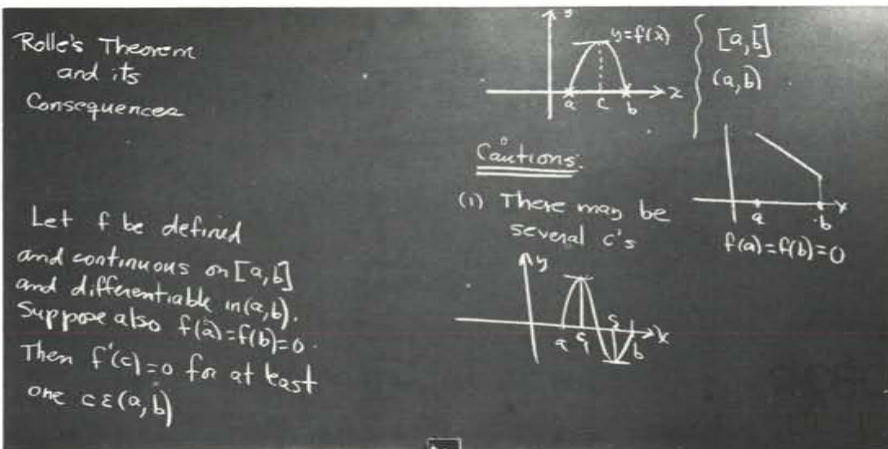 Rolle's Theorem
and its
Consequences
Let f be defined
and continuous on [a,b]
and differentiable in (a,b).
Suppose also f(a)=f(b)=0.
Then f'(c)=0 for at least
one c ε (a,b)
y=f(x)
a c b x
[a,b]
(a,b)
a b x
f(a)=f(b)=0
Cautions:
(1) There may be
several c's
y
a b x